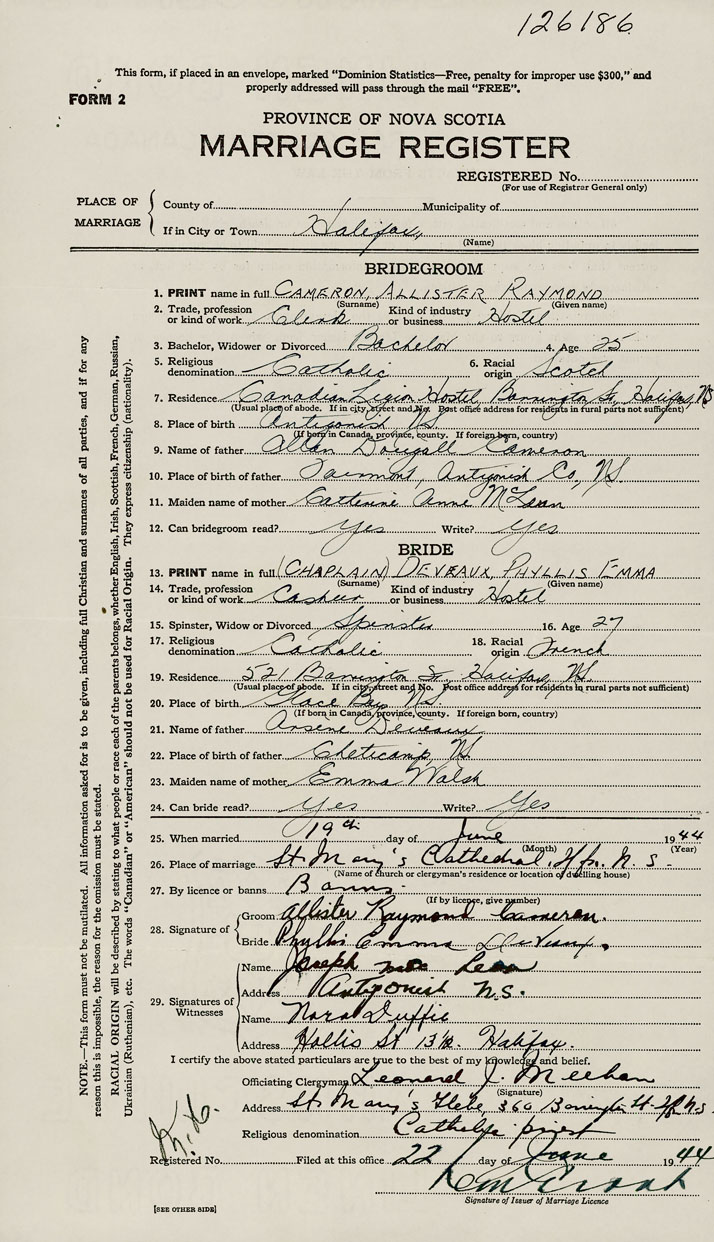 126186
This form, if placed in an envelope, marked "Dominion Statistics—Free, penalty for improper use $300," and
properly addressed will pass through the mail "FREE".
FORM 2
PROVINCE OF NOVA SCOTIA
MARRIAGE REGISTER
REGISTERED No.
(For use of Registrar General only)
PLACE OF MARRIAGE
County of Municipality of
If in City or Town Halifax,
(Name)
BRIDEGROOM
1. PRINT name in full CAMERON, ALLISTER RAYMOND
(Surname) (Given name)
2. Trade, profession or kind of work Clerk Kind of industry or business Hostel
3. Bachelor, Widower or Divorced Bachelor 4. Age 25
5. Religious denomination Catholic 6. Racial origin Scotch
7. Residence Canadian Legion Hostel, Barrington St, Halifax, NS
(Usual place of abode. If in city, street and No. Post office address for residents in rural parts not sufficient)
8. Place of birth Antigonish NS.
(If born in Canada, province, county. If foreign born, country)
9. Name of father Allan Dougall Cameron
10. Place of birth of father Fairmont, Antigonish Co, NS.
11. Maiden name of mother Catherine Anne McLean
12. Can bridegroom read? Yes Write? Yes
BRIDE
13. PRINT name in full (CHAPLAIN) DEVEAUX, PHYLLIS EMMA
(Surname) (Given name)
14. Trade, profession or kind of work Cashier Kind of industry or business Hostel
15. Spinster, Widow or Divorced Spinster 16. Age 27
17. Religious denomination Catholic 18. Racial origin French
19. Residence 521 Barrington St, Halifax, NS.
(Usual place of abode. If in city, street and No. Post office address for residents in rural parts not sufficient)
20. Place of birth Glace Bay NS.
(If born in Canada, province, county. If foreign born, country)
21. Name of father Arsene Deveaux
22. Place of birth of father Cheticamp, NS
23. Maiden name of mother Emma Walsh
24. Can bride read? Yes Write? Yes
25. When married 19th day of June 1944
(Month) (Year)
26. Place of marriage St Mary's Cathedral, Hfx. N.S.
(Name of church or clergyman's residence or location of dwelling house)
27. By licence or banns Banns.
(If by licence, give number)
28. Signature of
Groom Allister Raymond Cameron.
Bride Phyllis Emma DeVeaux.
29. Signatures of Witnesses
Name Joseph Mac Lean
Address Antigonish N.S.
Name Nora Duffie
Address Hollis St Halifax.
I certify the above stated particulars are true to the best of my knowledge and belief.
Officiating Clergyman Leonard J. Meehan
(Signature)
Address St Mary's Glebe, 360 Barrington St. Hfx N.S.
Religious denomination Catholic priest
Registered No. Filed at this office 22 day of June 1944
Signature of Issuer of Marriage Licence
[SEE OTHER SIDE]
NOTE.—This form must not be mutilated. All information asked for is to be given, including full Christian and surnames of all parties, and if for any
reason this is impossible, the reason for the omission must be stated.
RACIAL ORIGIN will be described by stating to what people or race each of the parents belongs, whether English, Irish, Scottish, French, German, Russian,
Ukrainian (Ruthenian), etc. The words "Canadian" or "American" should not be used for Racial Origin. They express citizenship (nationality).